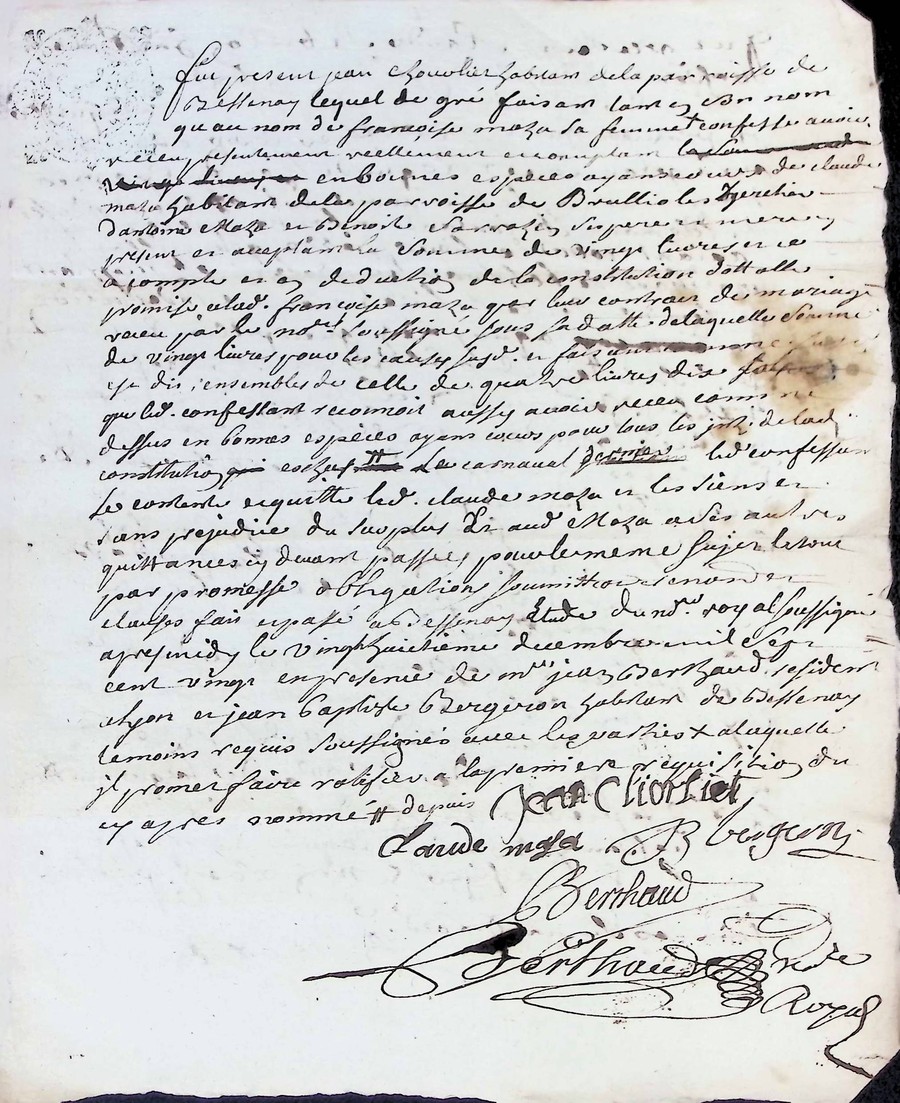 fut present jean Chouvliet habitant de la parroisse de
Bessenay lequel de gré faisant tant en son nom
qu'au nom de françoise maza sa femme + confesse avoir
receu presentement reellement et comptant la somme de
vingt livres en bonnes especes ayant cours de claude
maza habitant de la parroisse de Brullioles heretier
dantoine Maza et Benoiste Sarrazin ses pere et mere icy
present et acceptant la somme de vingt livres et ce
a compte et en deduction de la constitution dottalle
promise a lad. françoise maza par leur contract de mariage
receu par le nore. soussigné sous sa datte de laquelle somme
de vingt livres pour les causes susd. et
ensembles de celle de quatre livres dix
que led. confessant reconnoit aussy avoir receu comme
dessus en bonnes especes ayant cours pour tous les de lad.
constitution le carnaval dernier led. confessant
se contente et quitte led. claude maza et les siens et
sans prejudice du surplus Et aud. Maza a ses autres
quittances cy devant passées pour le meme sujet le tout
par promesse obligations soumittion renon. et
clauses fait et passé a Bessenay Etude du nore. royal soussigné
apres midy le vingt huitième decembre mil sept
cent vingt en presence de mre. jean Berthaud resident
a lyon et jean baptiste Bergeron habitant de Bessenay
temoins requis soussignés avec les parties + a laquelle
il promet faire ratifier a la premiere requisition du
cy apres nommé # depuis jean Chorliet
Claude maza B bergeron
Berthaud
Berthaud nore
Royal